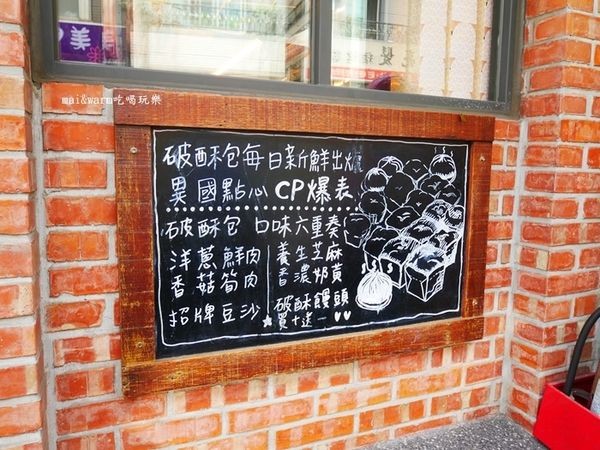 美
髮
mai&warm吃喝玩樂
破酥包每日新鮮出爐
異國點心 CP爆表
破酥包 口味六重奏
洋蔥鮮肉
香菇筍肉
招牌豆沙
養生芝麻
香濃奶黃
破酥饅頭
★買十送一♥♥